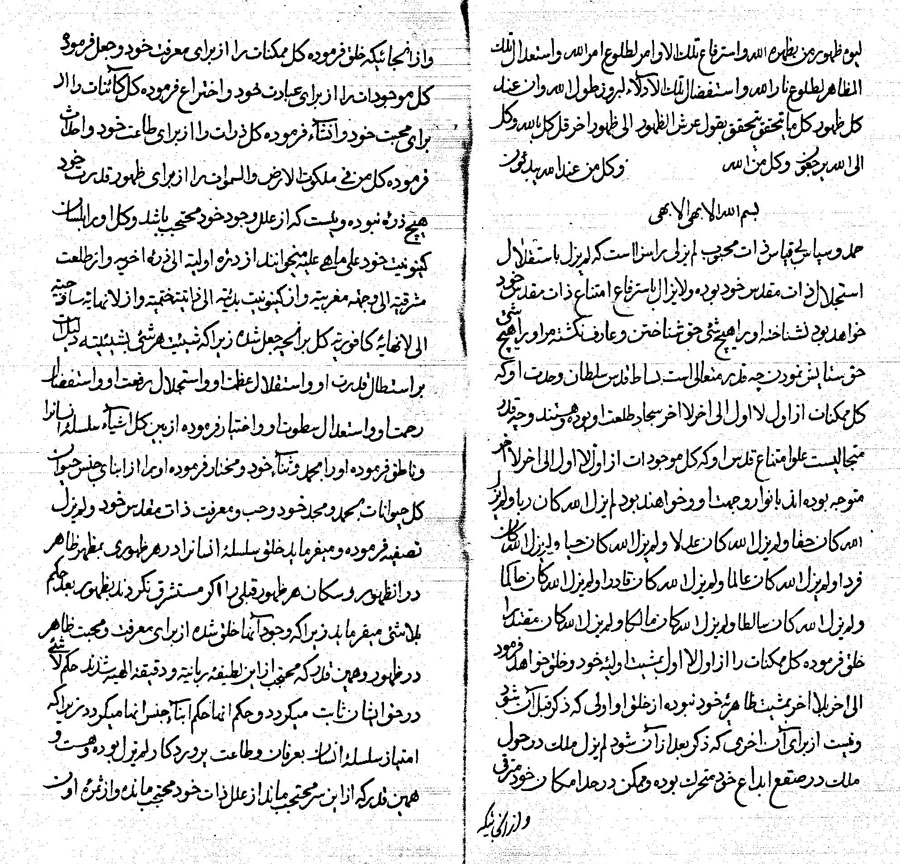 لیوم ظهور من یظهره الله و استرفاع تلك الاوامر لطلوع امر الله و استعدال تلك
المظاهر لطلوع نار الله و استفضال تلك الادلاء لبروز طول الله و ان عند
كل ظهور كل ما تحقق یتحقق بقول عرش الظهور الی ظهور اخر قل كل بالله و كل
الی الله یرجعون و كل من الله و كل من عند الله یبدئون
بسم الله الابهی الابهی
حمد و سپاس بی قیاس ذات محبوب لم یزلی را سزا است كه لم یزل باستقلال
استجلال ذات مقدس خود بوده و لایزال باسترفاع امتناع ذات مقدس خود
خواهد بود نشناخته او را هیچ شئ حق شناختن و عارف نگشته مر او را هیچ شئ
حق ستایش نمودن چه قدر متعالی است بساط قدس سلطان وحدت او كه
كل ممكنات از اول لا اول الی اخر لا اخر سجاد طلعت او بوده و هستند و چه قدر
متعالیست علو امتناع قدس او كه كل موجودات از اول لا اول الی اخر لا اخر
متوجه بوده اند بانوار وجهت او و خواهند بود لم یزل الله كان ربا و لم یزل
الله كان حقا و لم یزل الله كان عدلا و لم یزل الله كان حیا و لم یزل الله كان
فردا و لم یزل الله كان عالما و لم یزل الله كان قادرا و لم یزل الله كان حاكما
و لم یزل الله كان سالطا و لم یزل الله كان مالكا و لم یزل الله كان مقتدرا
خلق فرموده كل ممكنات را از اول لا اول بمشیت اولیه خود و خلق خواهد فرمود
الی اخر بلا اخر بمشیت ظاهریه خود نبوده از خلق او اولی كه ذكر قبل آن شود
و نیست از برای آن اخری كه ذكر بعد از آن شود لم یزل ملك در حول
ملك در صقع ابداع خود متحرك بوده و ممكن در حد امكان خود مترقی
و از انجائیكه
و از انجائیكه خلق فرموده كل ممكنات را از برای معرفت خود و جعل فرموده
كل موجودات را از برای عبادت خود و اختراع فرموده كل كائنات را از
برای محبت خود و انشاء فرموده كل ذرات را از برای طاعت خود و احداث
فرموده كل من فی ملكوت الارض و السموات را از برای ظهور قدرت خود
هیچ ذرهٔ نبوده و نیست كه از علل وجود خود محتجب باشد و كل او را بلسان
كینونیت خود علی ما هی علیه میخوانند از ذرهٔ اولیه الی ذرهٔ اخریه و از طلعت
مشرقیه الی وجهه مغربیه و از كینونیت بدئیه الی ذاتیت ختمیه و از لا نهایه ساذجیه
الی لا نهایه كافوریه كل بر انچه جعل شده زیرا كه شیئیت هر شئ بشیئیته دلیل است
بر استطال قدرت او و استقلال عظمت او و استجلال رفعت او و استفضال
رحمت او و استعدال سطوت او و اختیار فرموده از بین كل اشیاء سلسلهٔ انسانرا
و ناطق فرموده او را بحمد و ثناء خود و مختار فرموده او را از ابنای جنس حیوان
كل حیوانات بحمد و مجد خود و حب و معرفت ذات مقدس خود و لم یزل
تصفیه فرموده و میفرماید خلق سلسلهٔ انسانرا در هر ظهوری بمظهر ظاهر
در انظهور و سكان هر ظهور قبلی را اگر مستشرق نگردند بظهور بعد حكم
بلا شئ میفرماید زیرا كه وجود انها خلق شده از برای معرفت و محبت ظاهر
در ظهور و همین قدر كه محتجب از این لطیفه ربانیه و دقیقه الهیه شدند حكم لا شئ
در حق ایشان ثابت میگردد و حكم انها حكم ابناء جنس انها میگردد زیرا كه
امتیاز سلسلهٔ انسان بعرفان و طاعت پروردگار لم یزل بوده و هست و
همین قدر كه از این سر محتجب ماند از علل ذات خود محتجب مانده و از ثمرهٔ او ان